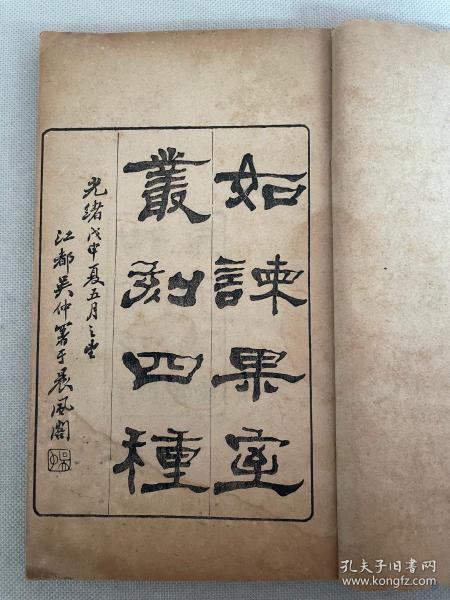 如諫果室
叢刻四種
光緒戊申夏五月之望
江都吴仲署于晨風閣
孔夫子旧书网
www.kongfz.com